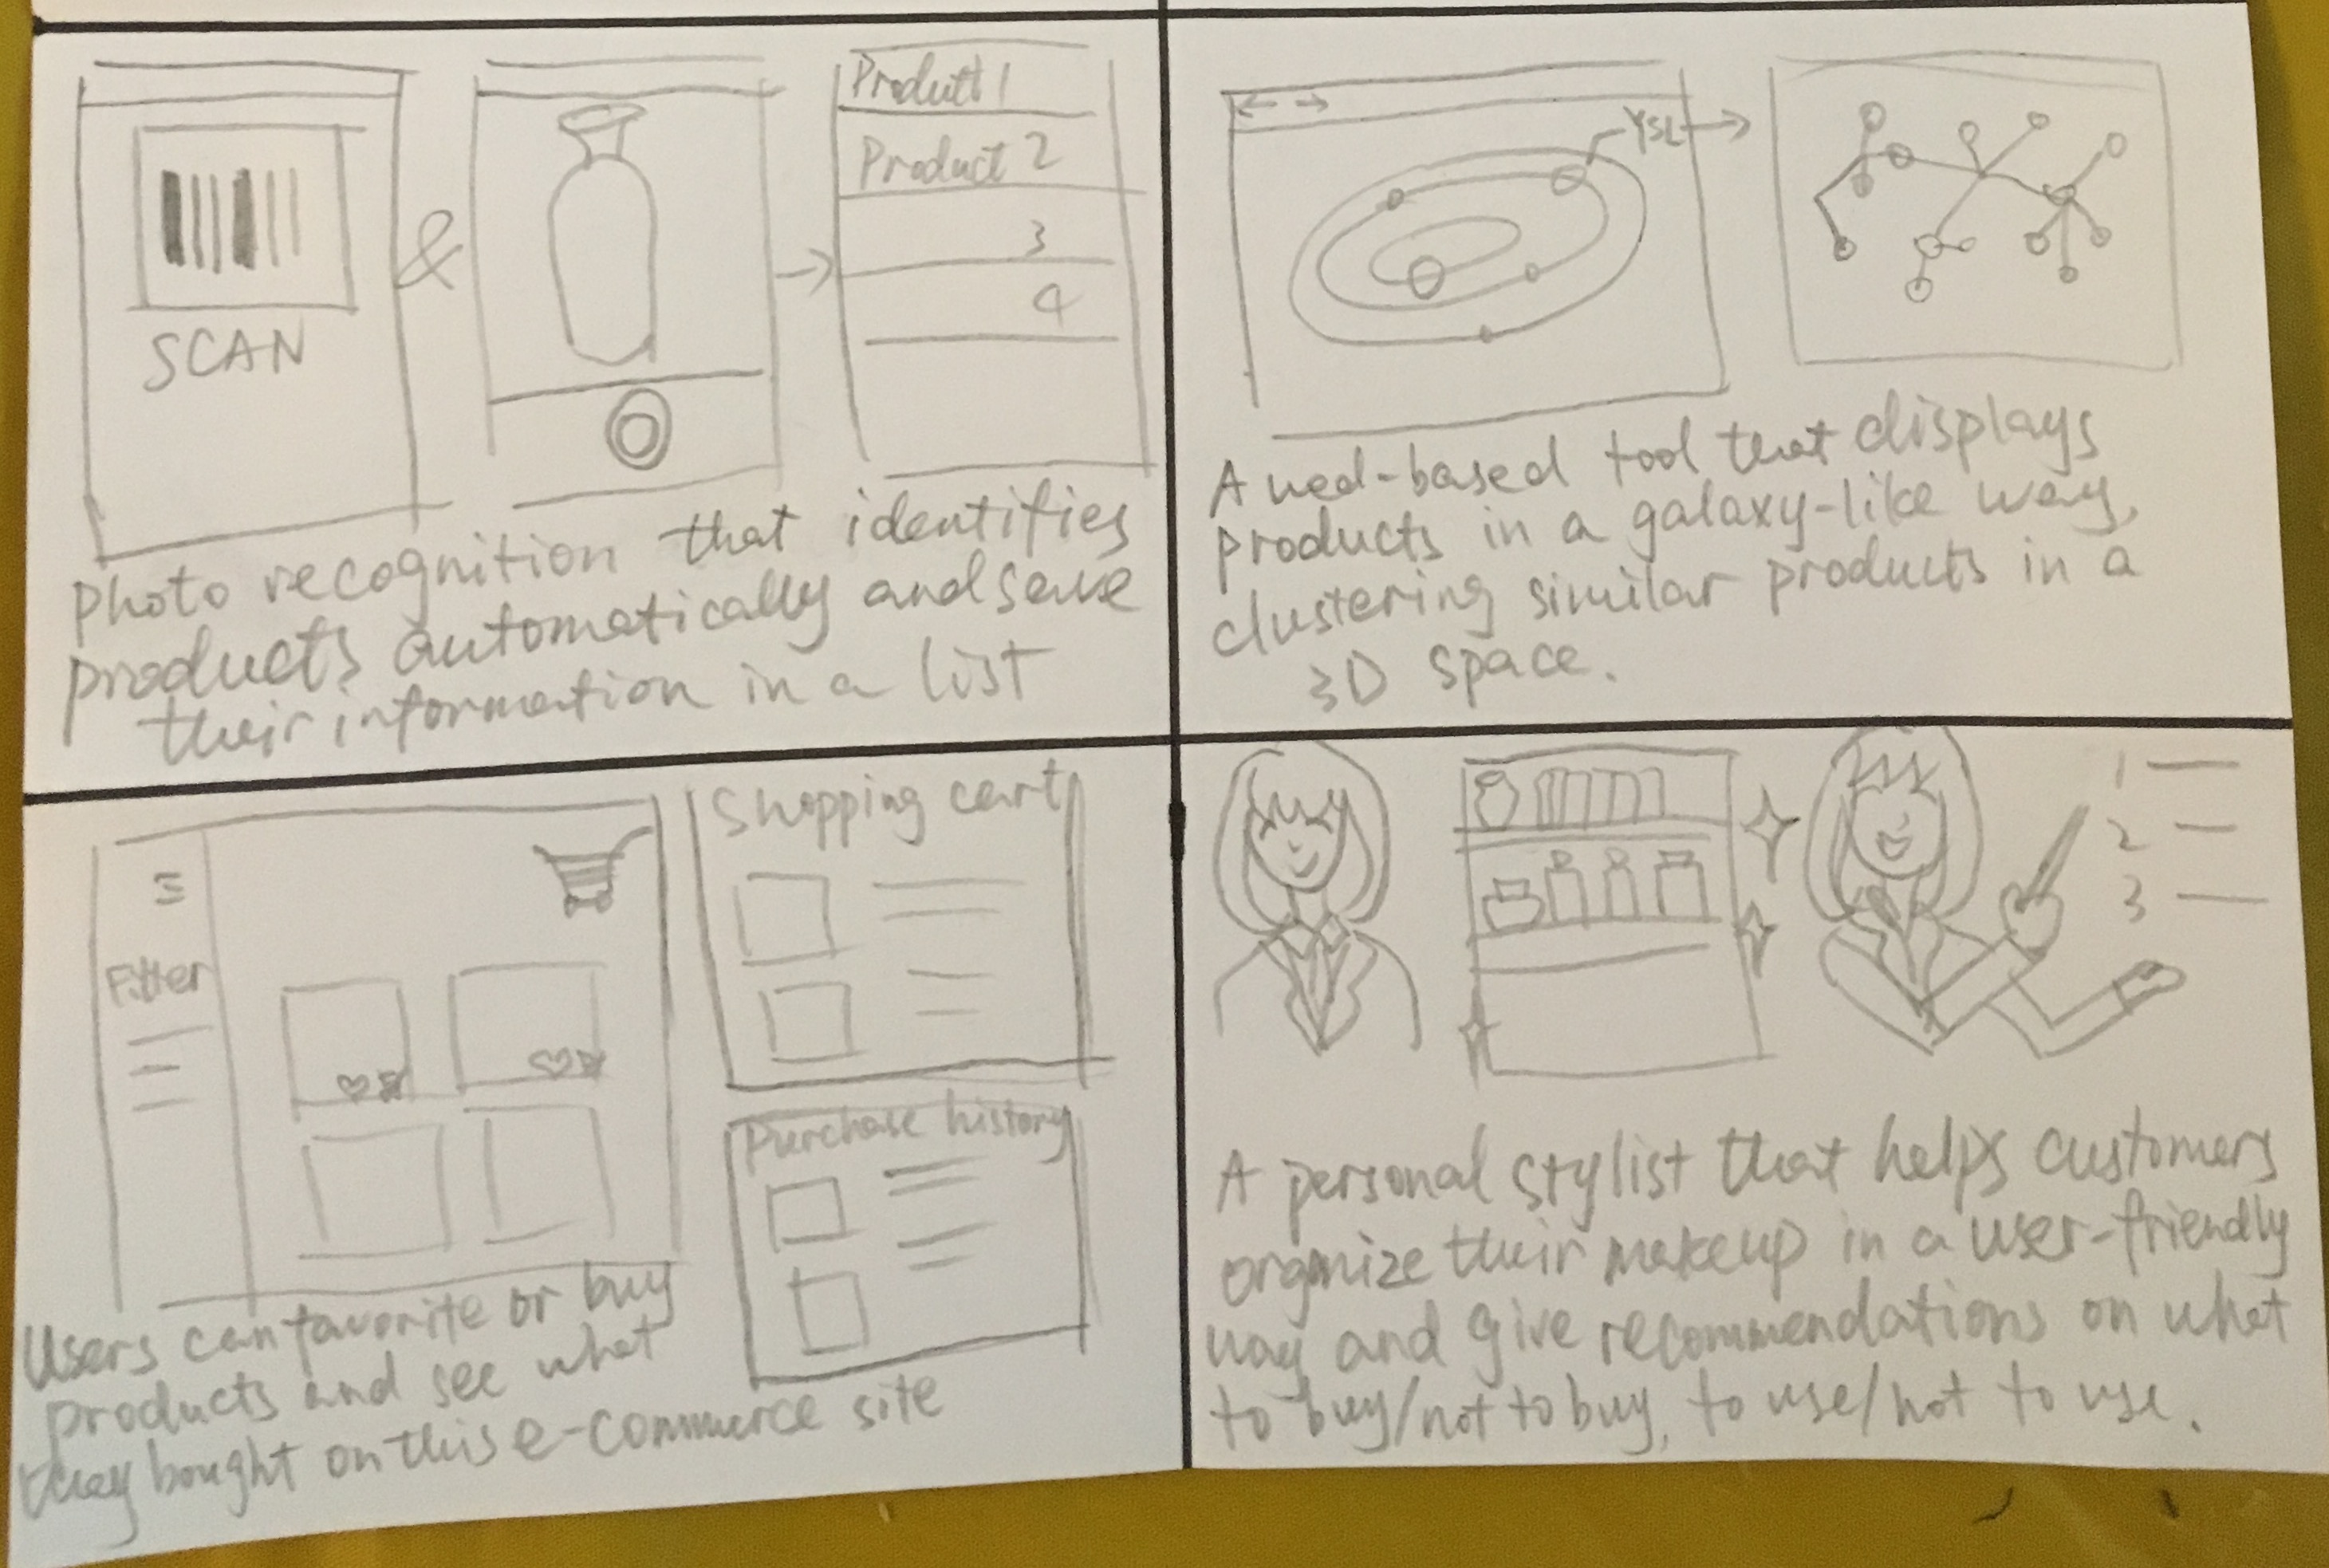 Product 1
Product 2
3
4
&
SCAN
Photo recognition that identifies
products automatically and save
their information in a list
YSL
A wed-based tool that displays
products in a galaxy-like way,
clustering similar products in a
3D space.
Filter
Shopping cart
Purchase history
Users can favorite or buy
products and see what
they bought on this e-commerce site
1
2
3
A personal stylist that helps customers
organize their makeup in a user-friendly
way and give recommendations on what
to buy/not to buy, to use/not to use.